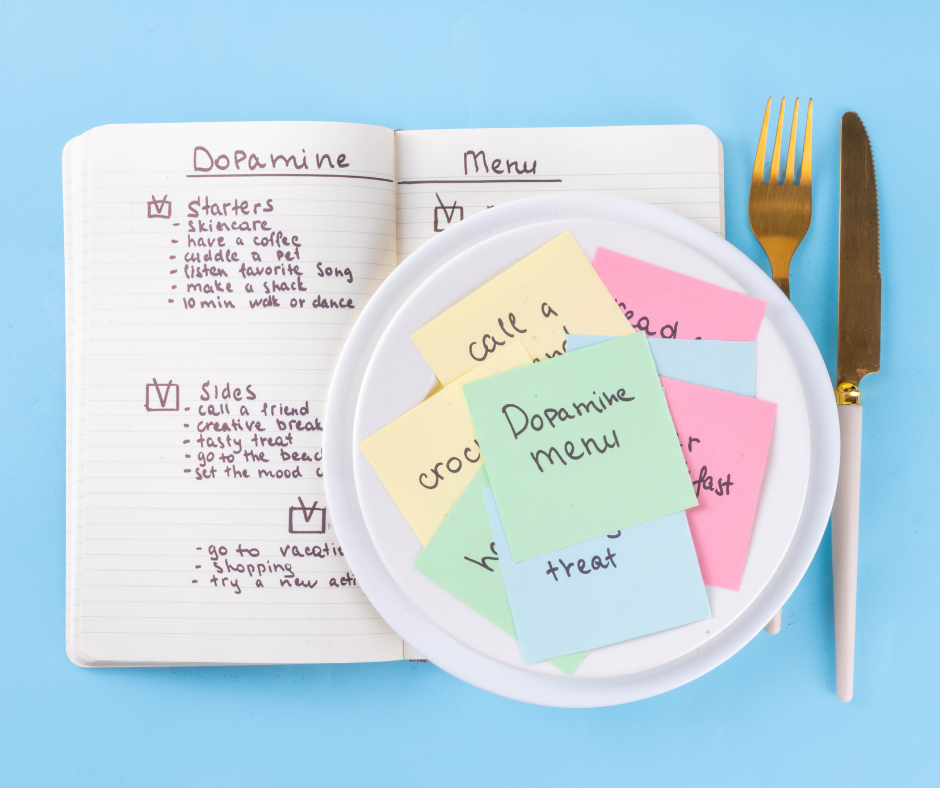 Dopamine Menu
Starters
- skincare
- have a coffee
- cuddle a pet
- listen favorite Song
- make a snack
- 10 min walk or dance
Sides
- call a friend
- creative break
- tasty treat
- go to the
- set the mood
- go to
- Shopping
- try a new
call a
Dopamine
menu
treat